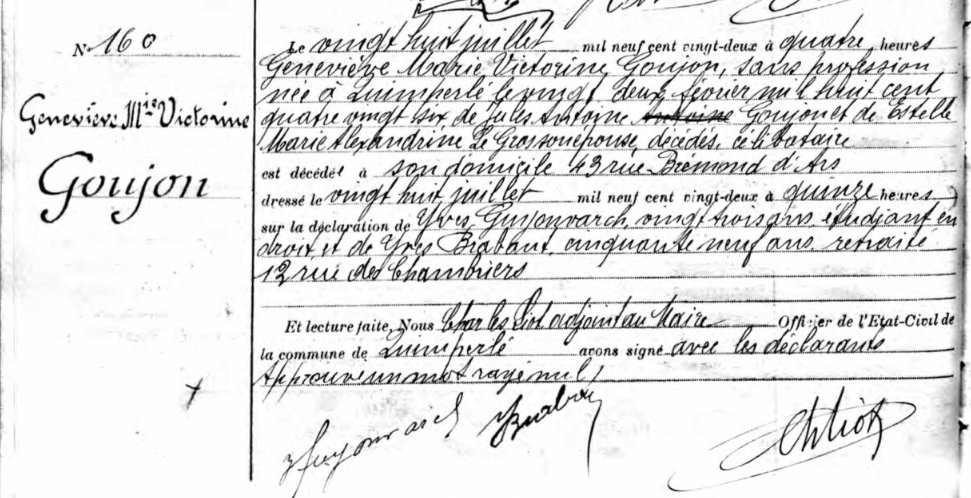 N° 160
Geneviève Mie Victorine
Goujon
Le vingt huit juillet mil neuf cent vingt-deux à quatre heures
Geneviève Marie Victorine Goujon, sans profession
née à Quimperlé le vingt deux février mil huit cent
quatre vingt six de Jules Antoine Antoine Goujon et de Estelle
Marie Alexandrine Le Gros son épouse, décédés, célibataire
est décédée à son domicile 43 rue Brémond d'Ars
dressé le vingt huit juillet mil neuf cent vingt-deux à quinze heures
sur la déclaration de Yves Guyonvarch, vingt trois ans, étudiant en
droit, et de Yves Brabant, cinquante neuf ans, retraité
12 rue des
Et lecture faite, Nous Charles adjoint au Maire Officier de l'Etat-Civil de
la commune de Quimperlé avons signé avec les déclarants
Approuvé un mot rayé nul,